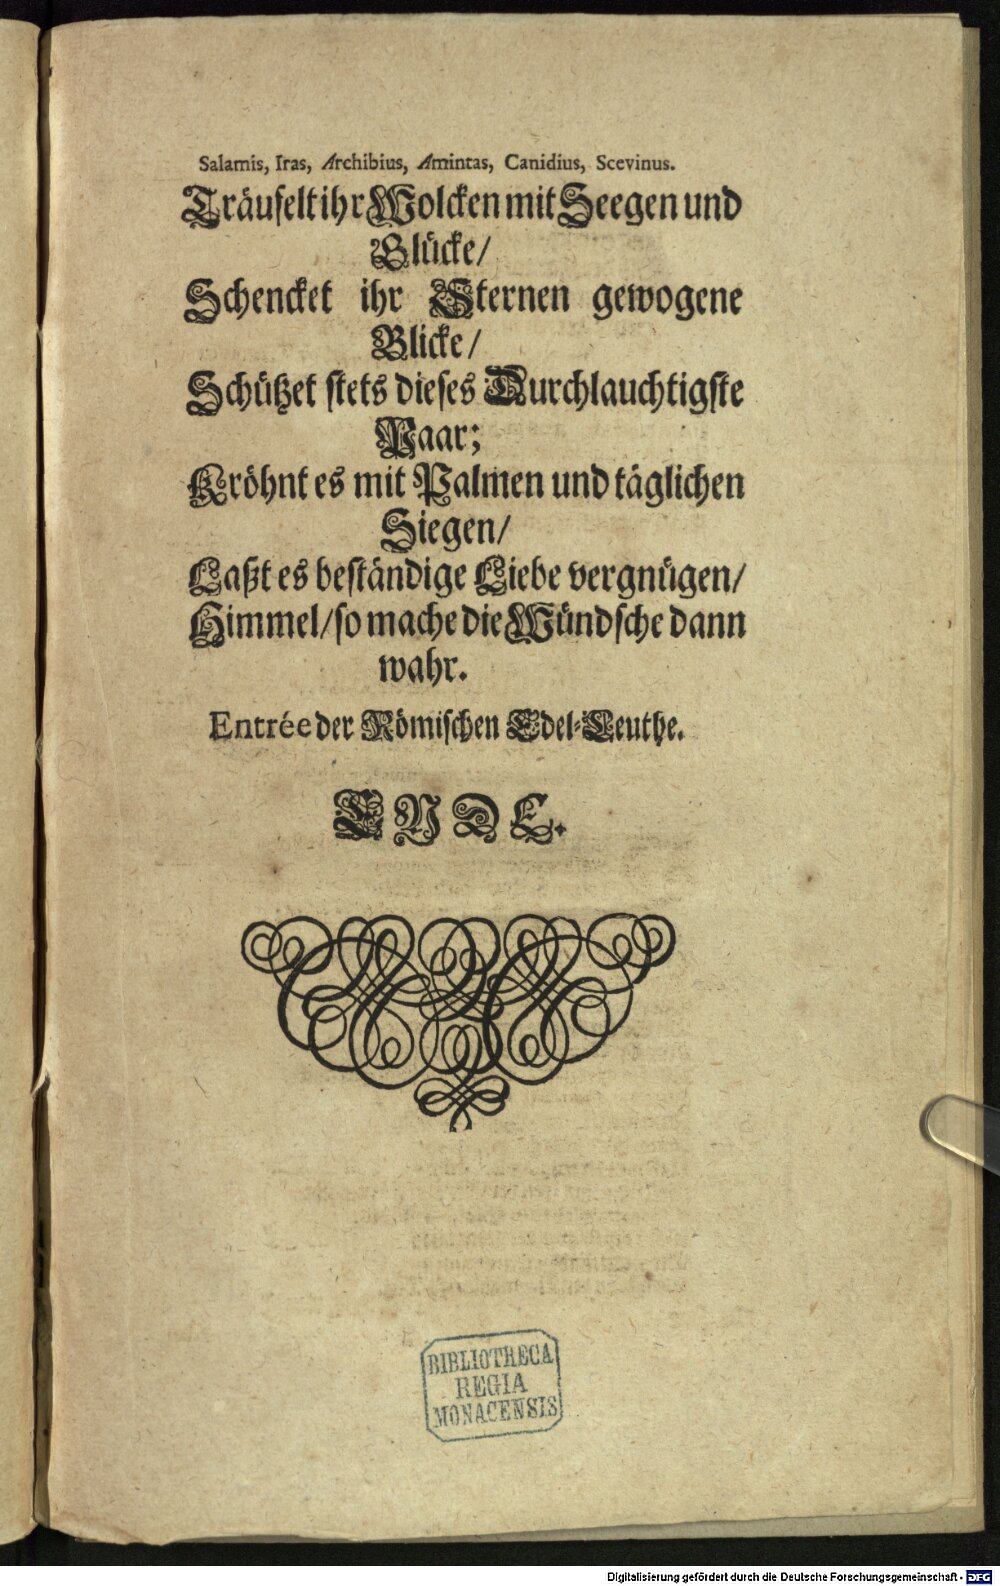 Salamis, Iras, Archibius, Amintas, Canidius, Scevinus.
Träufelt ihr Wolcken mit Seegen und
Glücke/
Schencket ihr Sternen gewogene
Blicke/
Schützet stets dieses Durchlauchtigste
Paar;
Kröhnt es mit Palmen und täglichen
Siegen/
Laßt es beständige Liebe vergnügen/
Himmel/ so mache die Wündsche dann
wahr.
Entrée der Römischen Edel-Leuthe.
ENDE.
BIBLIOTHECA
REGIA
MONACENSIS
Digitalisierung gefördert durch die Deutsche Forschungsgemeinschaft - DFG